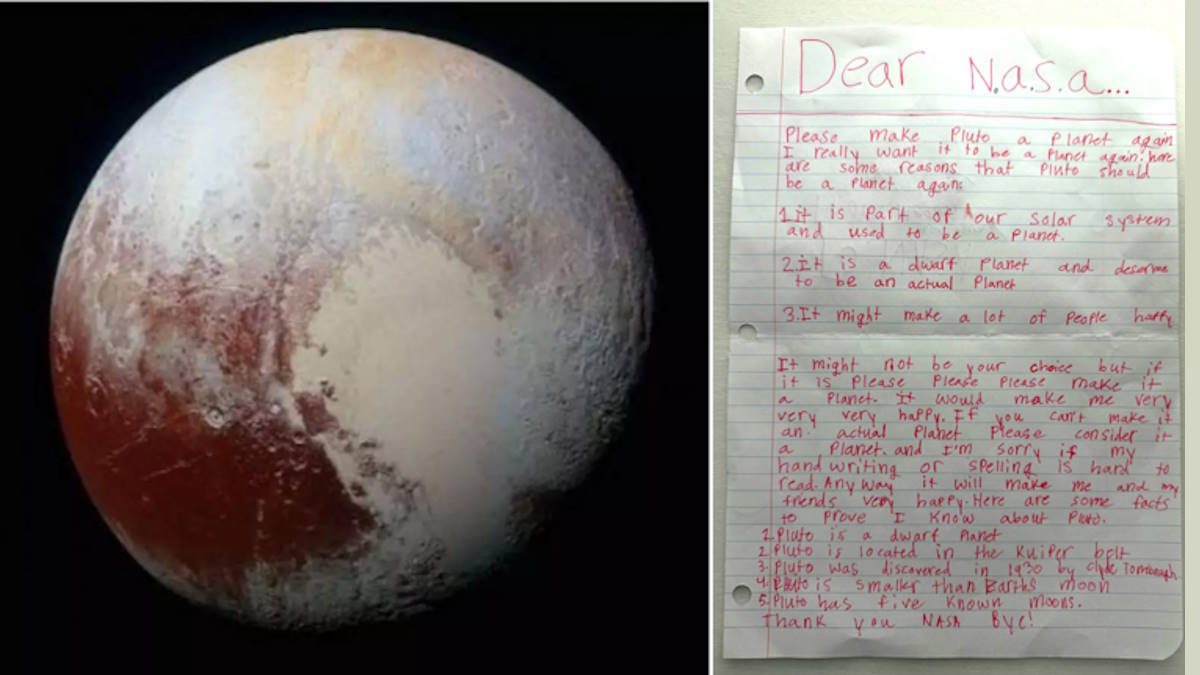 Dear N.a.s.a...
Please make Pluto a Planet again
I really want it to be a Planet again. here
are some reasons that Pluto should
be a Planet again:
1.it is Part of our solar system
and used to be a Planet.
2.it is a dwarf Planet and deserve
to be an actual Planet
3.It might make a lot of People happy
It might not be your choice but if
it is Please Please Please make it
a Planet. It would make me very
very very happy. If you can't make it
an actual Planet Please consider it
a Planet. and I'm sorry if my
hand writing or spelling is hard to
read. Any way it will make me and my
friends very happy. Here are some facts
to Prove I know about Pluto.
1.Pluto is a dwarf Planet
2.Pluto is located in the Kuiper belt
3.Pluto was discovered in 1930 by Clyde Tombaugh
4.Pluto is smaller than Earths moon
5.Pluto has five known moons.
Thank you NASA Bye!